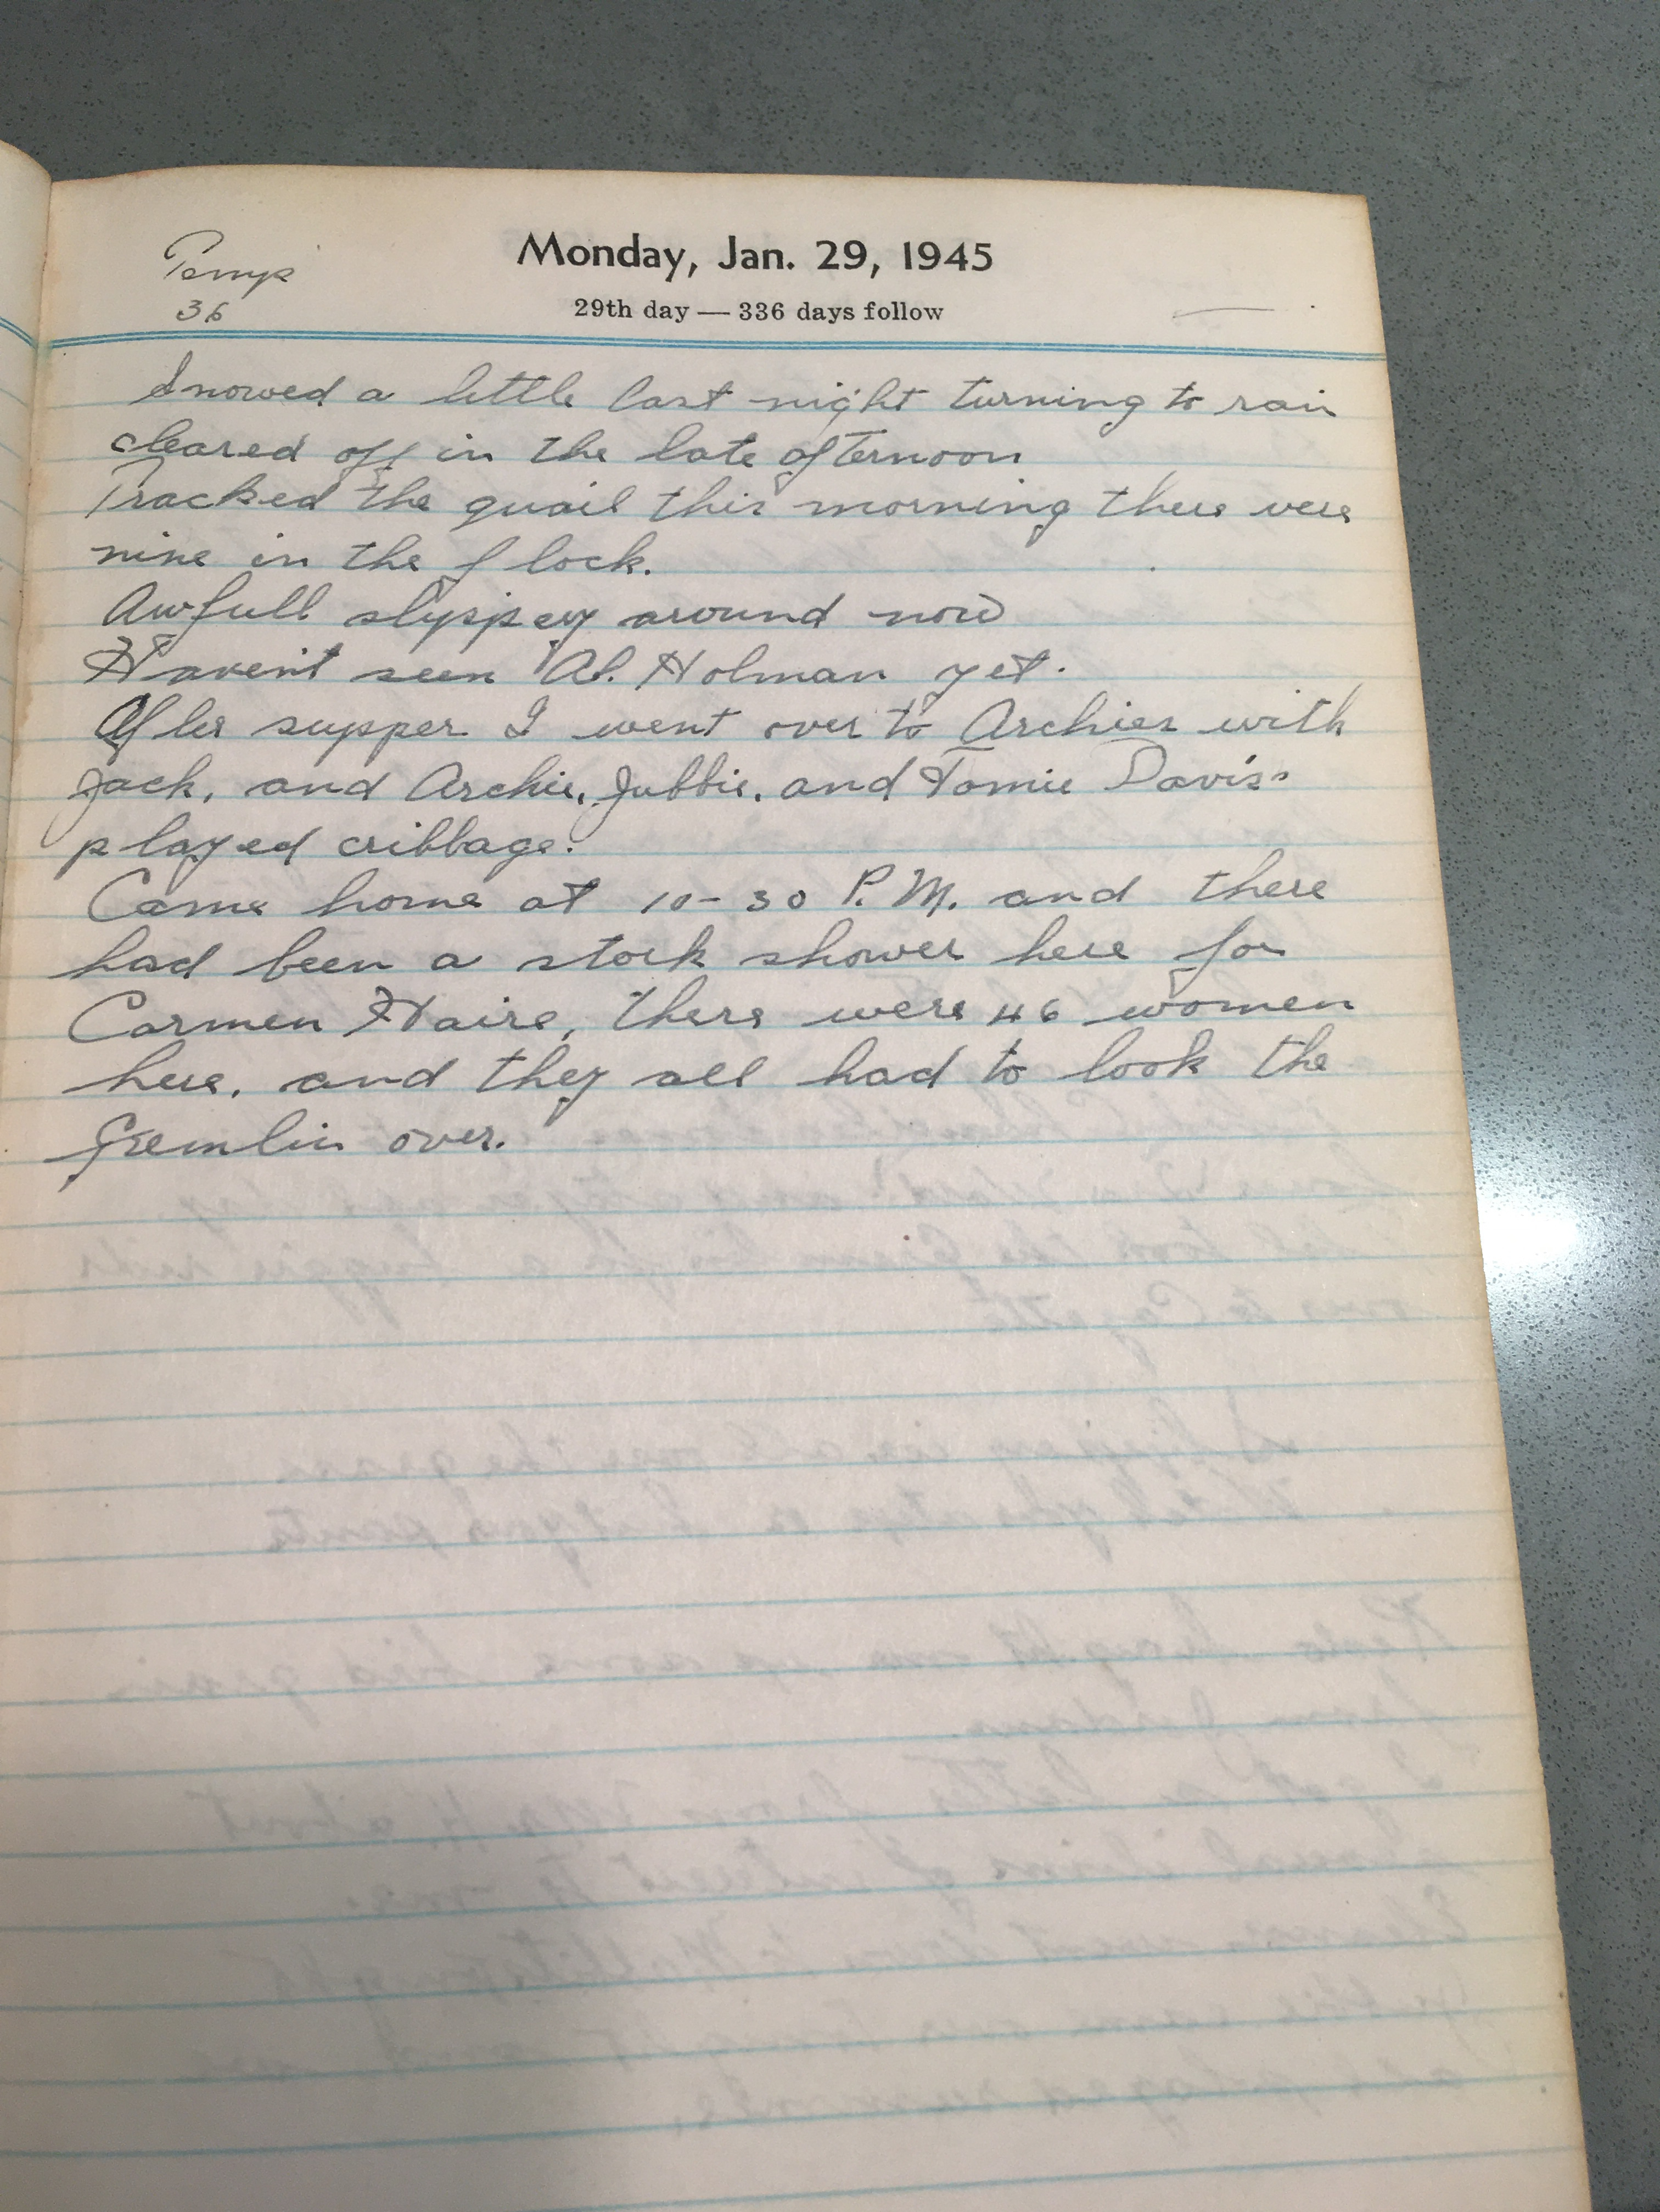 Temp
36
Monday, Jan. 29, 1945
29th day — 336 days follow
Snowed a little last night turning to rain
cleared off in the late afternoon
Tracked the quail this morning there were
nine in the flock.
Awfull slyppery around now
Haven't seen Al. Holman yet.
After supper I went over to Archies with
Jack, and Archie, Jubbie, and Tomie Davis
played cribbage.
Came home at 10-30 P.M. and there
had been a stork shower here for
Carmen Haire, there were 46 women
here, and they all had to look the
Gremlin over.